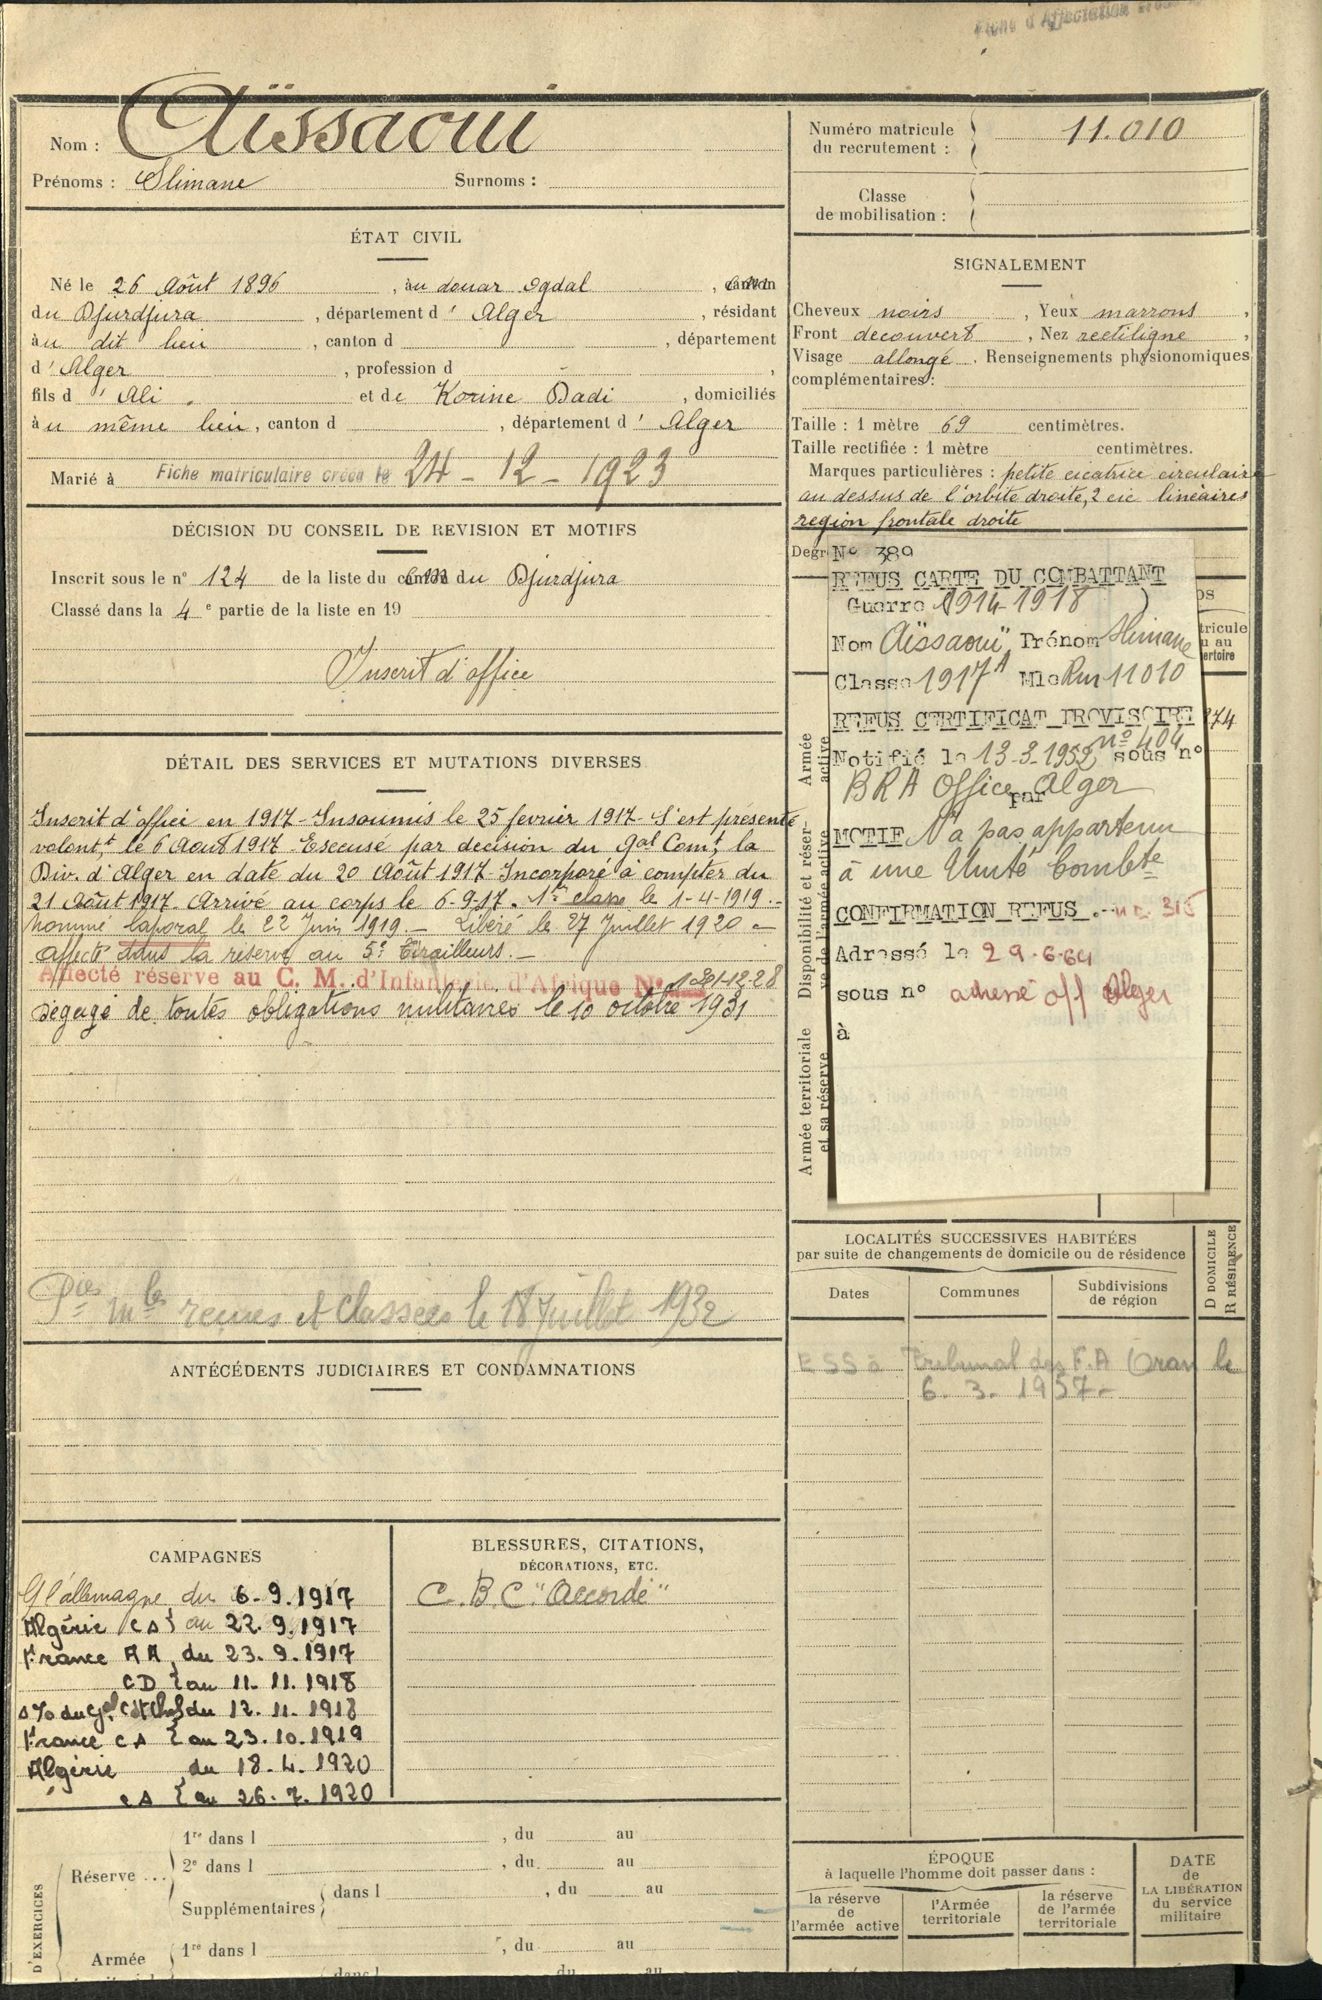 Fiche d'Affectation
Nom : Aïssaoui
Prénoms : Slimane Surnoms :
Numéro matricule du recrutement : 11.010
Classe de mobilisation :
ÉTAT CIVIL
Né le 26 Août 1896, au douar Ogdal, canton
du Djurdjura, département d' Alger, résidant
àu dit lieu, canton d , département
d' Alger, profession d -,
fils d' Ali. et de Korine Dadi, domiciliés
àu même lieu, canton d , département d' Alger
Marié à Fiche matriculaire créée le 24-12-1923
DÉCISION DU CONSEIL DE REVISION ET MOTIFS
Inscrit sous le n° 124 de la liste du canton du Djurdjura
Classé dans la 4e partie de la liste en 19
Inscrit d'office
DÉTAIL DES SERVICES ET MUTATIONS DIVERSES
Inscrit d'office en 1917 - Insoumis le 25 fevrier 1917 - S'est présenté
volont.t le 6 Aout 1917 - Excusé par decision du Gal Com.t la
Div. d'Alger en date du 20 Août 1917 - Incorporé à compter du
21 Août 1917. Arrivé au corps le 6-9-17. 1re classe le 1-4-1919.-
Nommé Caporal le 22 Juin 1919.- Libéré le 27 Juillet 1920 -
Affecté dans la réserve au 5e Tirailleurs.-
Affecté réserve au C. M. d'Infanterie d'Afrique N° 1-12-28
Dégagé de toutes obligations militaires le 10 octobre 1931
Pces mles reçues et classées le 18 Juillet 1932
ANTÉCÉDENTS JUDICIAIRES ET CONDAMNATIONS
CAMPAGNES
C/ l'allemagne du 6-9.1917
Algérie CS } au 22.9.1917
France AA du 23.9.1917
CD { au 11.11.1918
du 12.11.1918
France CS { au 23.10.1919
Algérie du 18.4.1920
CS { au 26.7.1920
BLESSURES, CITATIONS,
DÉCORATIONS, ETC.
C.B.C. "Accordé"
D'EXERCICES
Réserve ...
1re dans l , du au
2e dans l , du au
Supplémentaires { dans l , du au
Armée
1re dans l , du au
dans l du au
SIGNALEMENT
Cheveux noirs, Yeux marrons,
Front decouvert, Nez rectiligne,
Visage allongé. Renseignements physionomiques
complémentaires :
Taille : 1 mètre 69 centimètres.
Taille rectifiée : 1 mètre centimètres.
Marques particulières : petite cicatrice circulaire
au dessus de l'orbite droite, 2 cic linéaires
region frontale droite
Degr
Armée active
Disponibilité et réserve de l'armée active
Armée territoriale et sa réserve
N° 389
REFUS CARTE DU COMBATTANT
Guerre 1914-1918
Nom Aïssaoui Prénom Slimane
Classe 1917A Mle Rm 11010
REFUS CERTIFICAT PROVISOIRE
Notifié le 13-3-1952 sous n° N° 404
par BRA Office Alger
MOTIF N'a pas appartenu
à une Unité Combte
CONFIRMATION REFUS.- n° 315
Adressé le 29-6-64
sous n° adressé off Alger
à
LOCALITÉS SUCCESSIVES HABITÉES
par suite de changements de domicile ou de résidence
Dates
Communes
Subdivisions de région
D DOMICILE
R RÉSIDENCE
ESS à Tribunal des F.A Oran le
6.3.1957-
ÉPOQUE
à laquelle l'homme doit passer dans :
la réserve de l'armée active
l'Armée territoriale
la réserve de l'armée territoriale
DATE
de
LA LIBÉRATION
du service
militaire